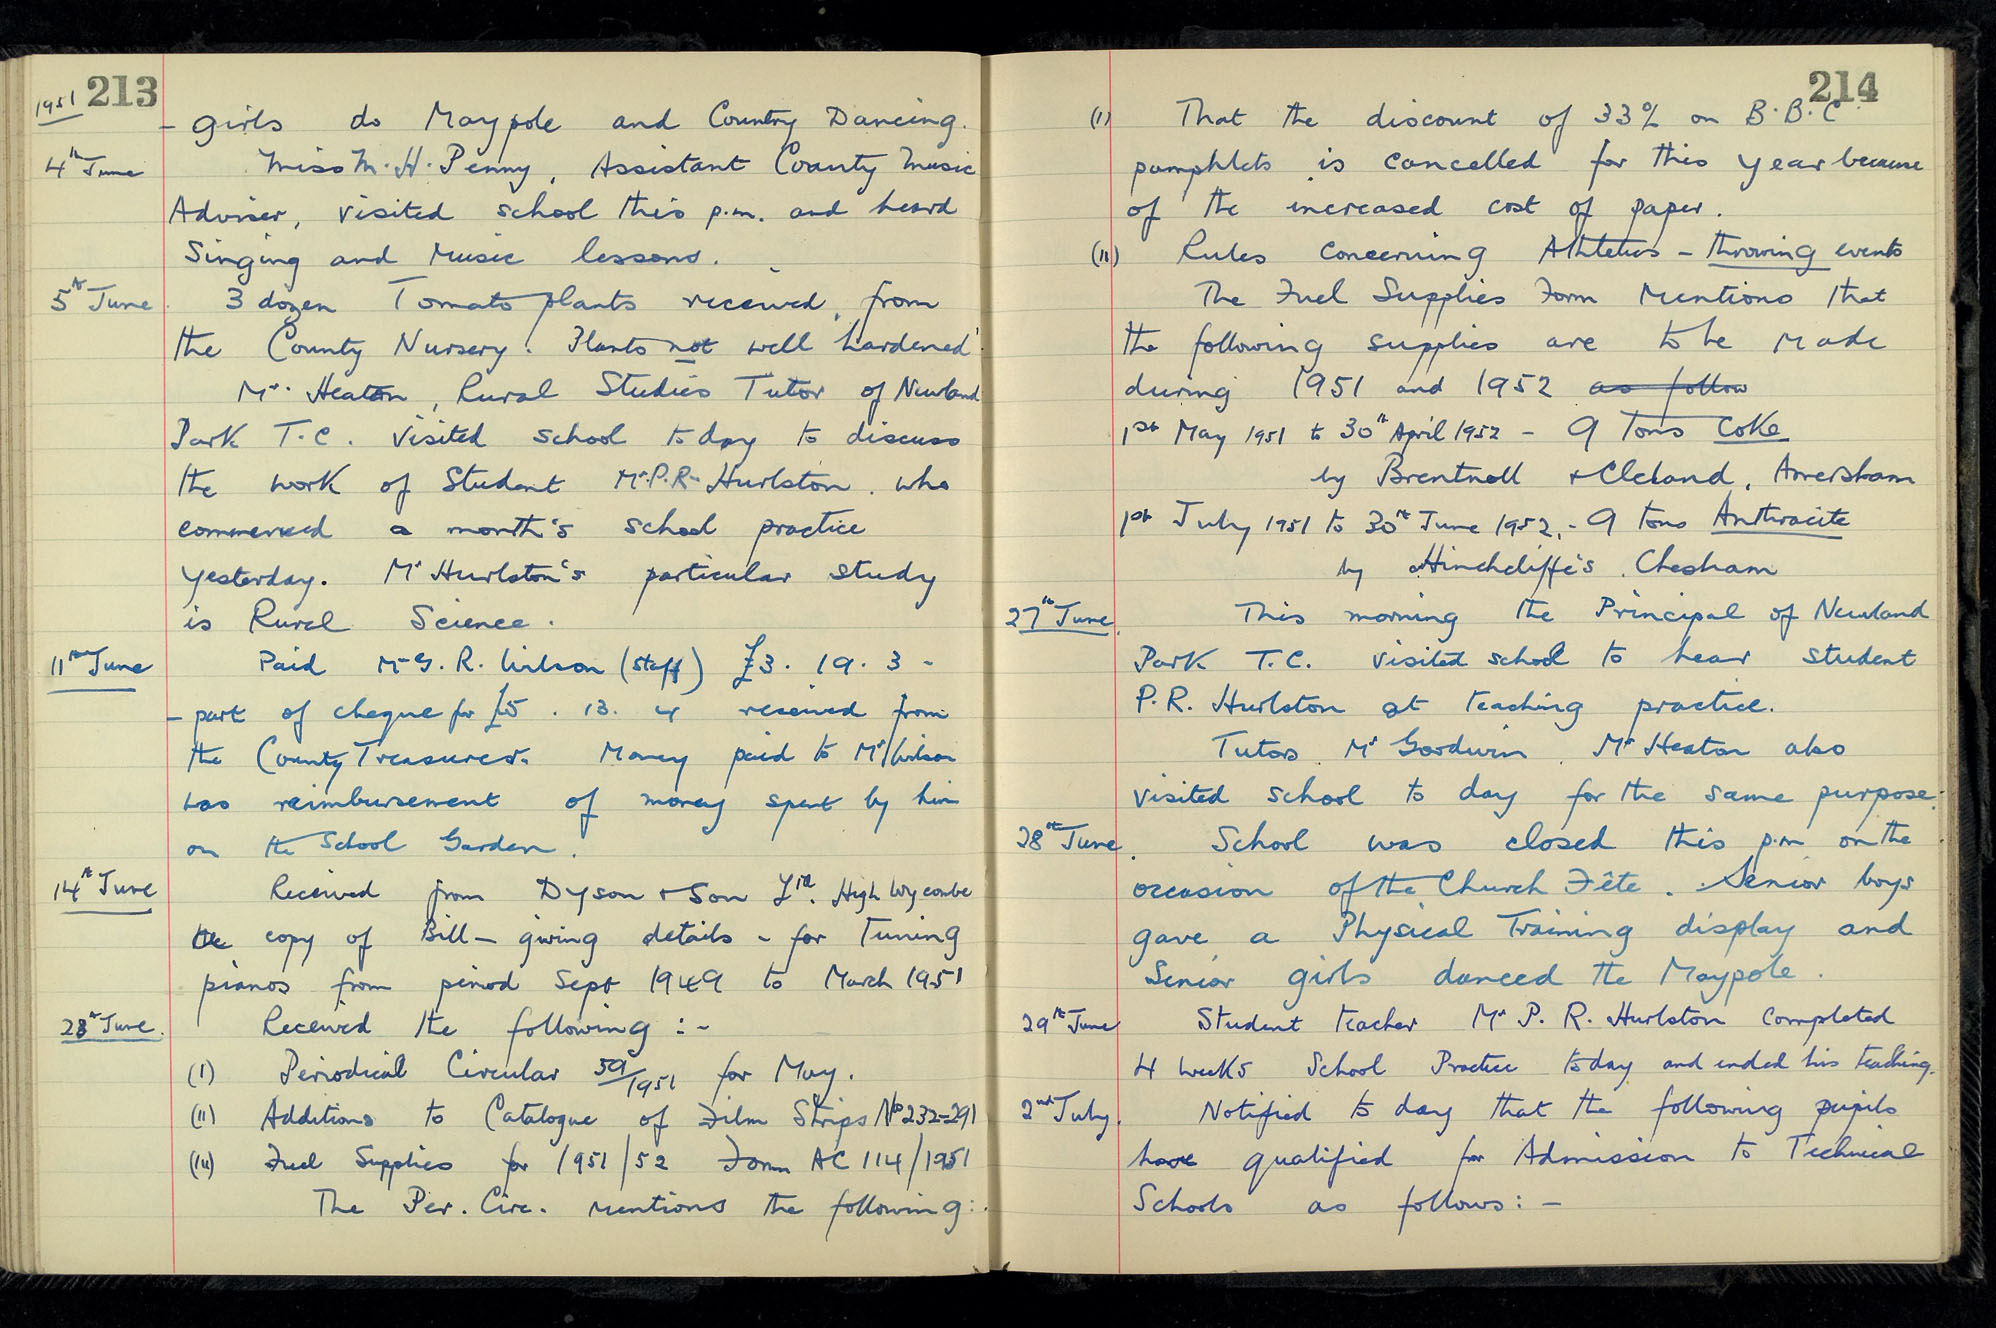 1951 213
- girls do Maypole and Country Dancing.
4th June Miss M. H. Penny, Assistant County Music
Adviser, visited school this p.m. and heard
Singing and Music lessons.
5th June 3 dozen Tomato plants received, from
the County Nursery. Plants not well hardened!
Mr. Heaton, Rural Studies Tutor of Newland
Park T.C. visited school today to discuss
the work of Student Mr. P.R. Hurlston, who
commenced a month's school practice
yesterday. Mr Hurlston's particular study
is Rural Science.
11th June Paid Mr G. R. Wilson (staff) £3. 19. 3 -
- part of cheque for £5. 13. 4 received from
the County Treasurer. Money paid to Mr Wilson
was reimbursement of money spent by him
on the School Garden.
14th June Received from Dyson & Son Ltd. High Wycombe
the copy of Bill - giving details - for Tuning
pianos from period Sept 1949 to March 1951
23rd June. Received the following :-
(I) Periodical Circular 59/1951 for May.
(II) Additions to Catalogue of Film Strips No 232-291
(III) Fuel Supplies for 1951/52 Form AC 114/1951
The Per. Circ. mentions the following:.
214
(I) That the discount of 33% on B.B.C
pamphlets is cancelled for this year because
of the increased cost of paper.
(II) Rules concerning Athletics - throwing events
The Fuel Supplies Form mentions that
the following supplies are to be made
during 1951 and 1952 as follow
1st May 1951 to 30th April 1952 - 9 Tons Coke
by Brentnall & Cleland, Amersham
1st July 1951 to 30th June 1952. - 9 tons Anthracite
by Hinchcliffe's, Chesham
27th June. This morning the Principal of Newland
Park T.C. visited school to hear student
P.R. Hurlston at teaching practice.
Tutors Mr Goodwin, Mr Heaton also
visited school to day for the same purpose.
28th June. School was closed this p.m on the
occasion of the Church Fête. Senior boys
gave a Physical Training display and
Senior girls danced the Maypole.
29th June Student teacher Mr P. R. Hurlston completed
4 weeks School Practice today and ended his teaching.
2nd July. Notified to day that the following pupils
have qualified for Admission to Technical
Schools as follows: -